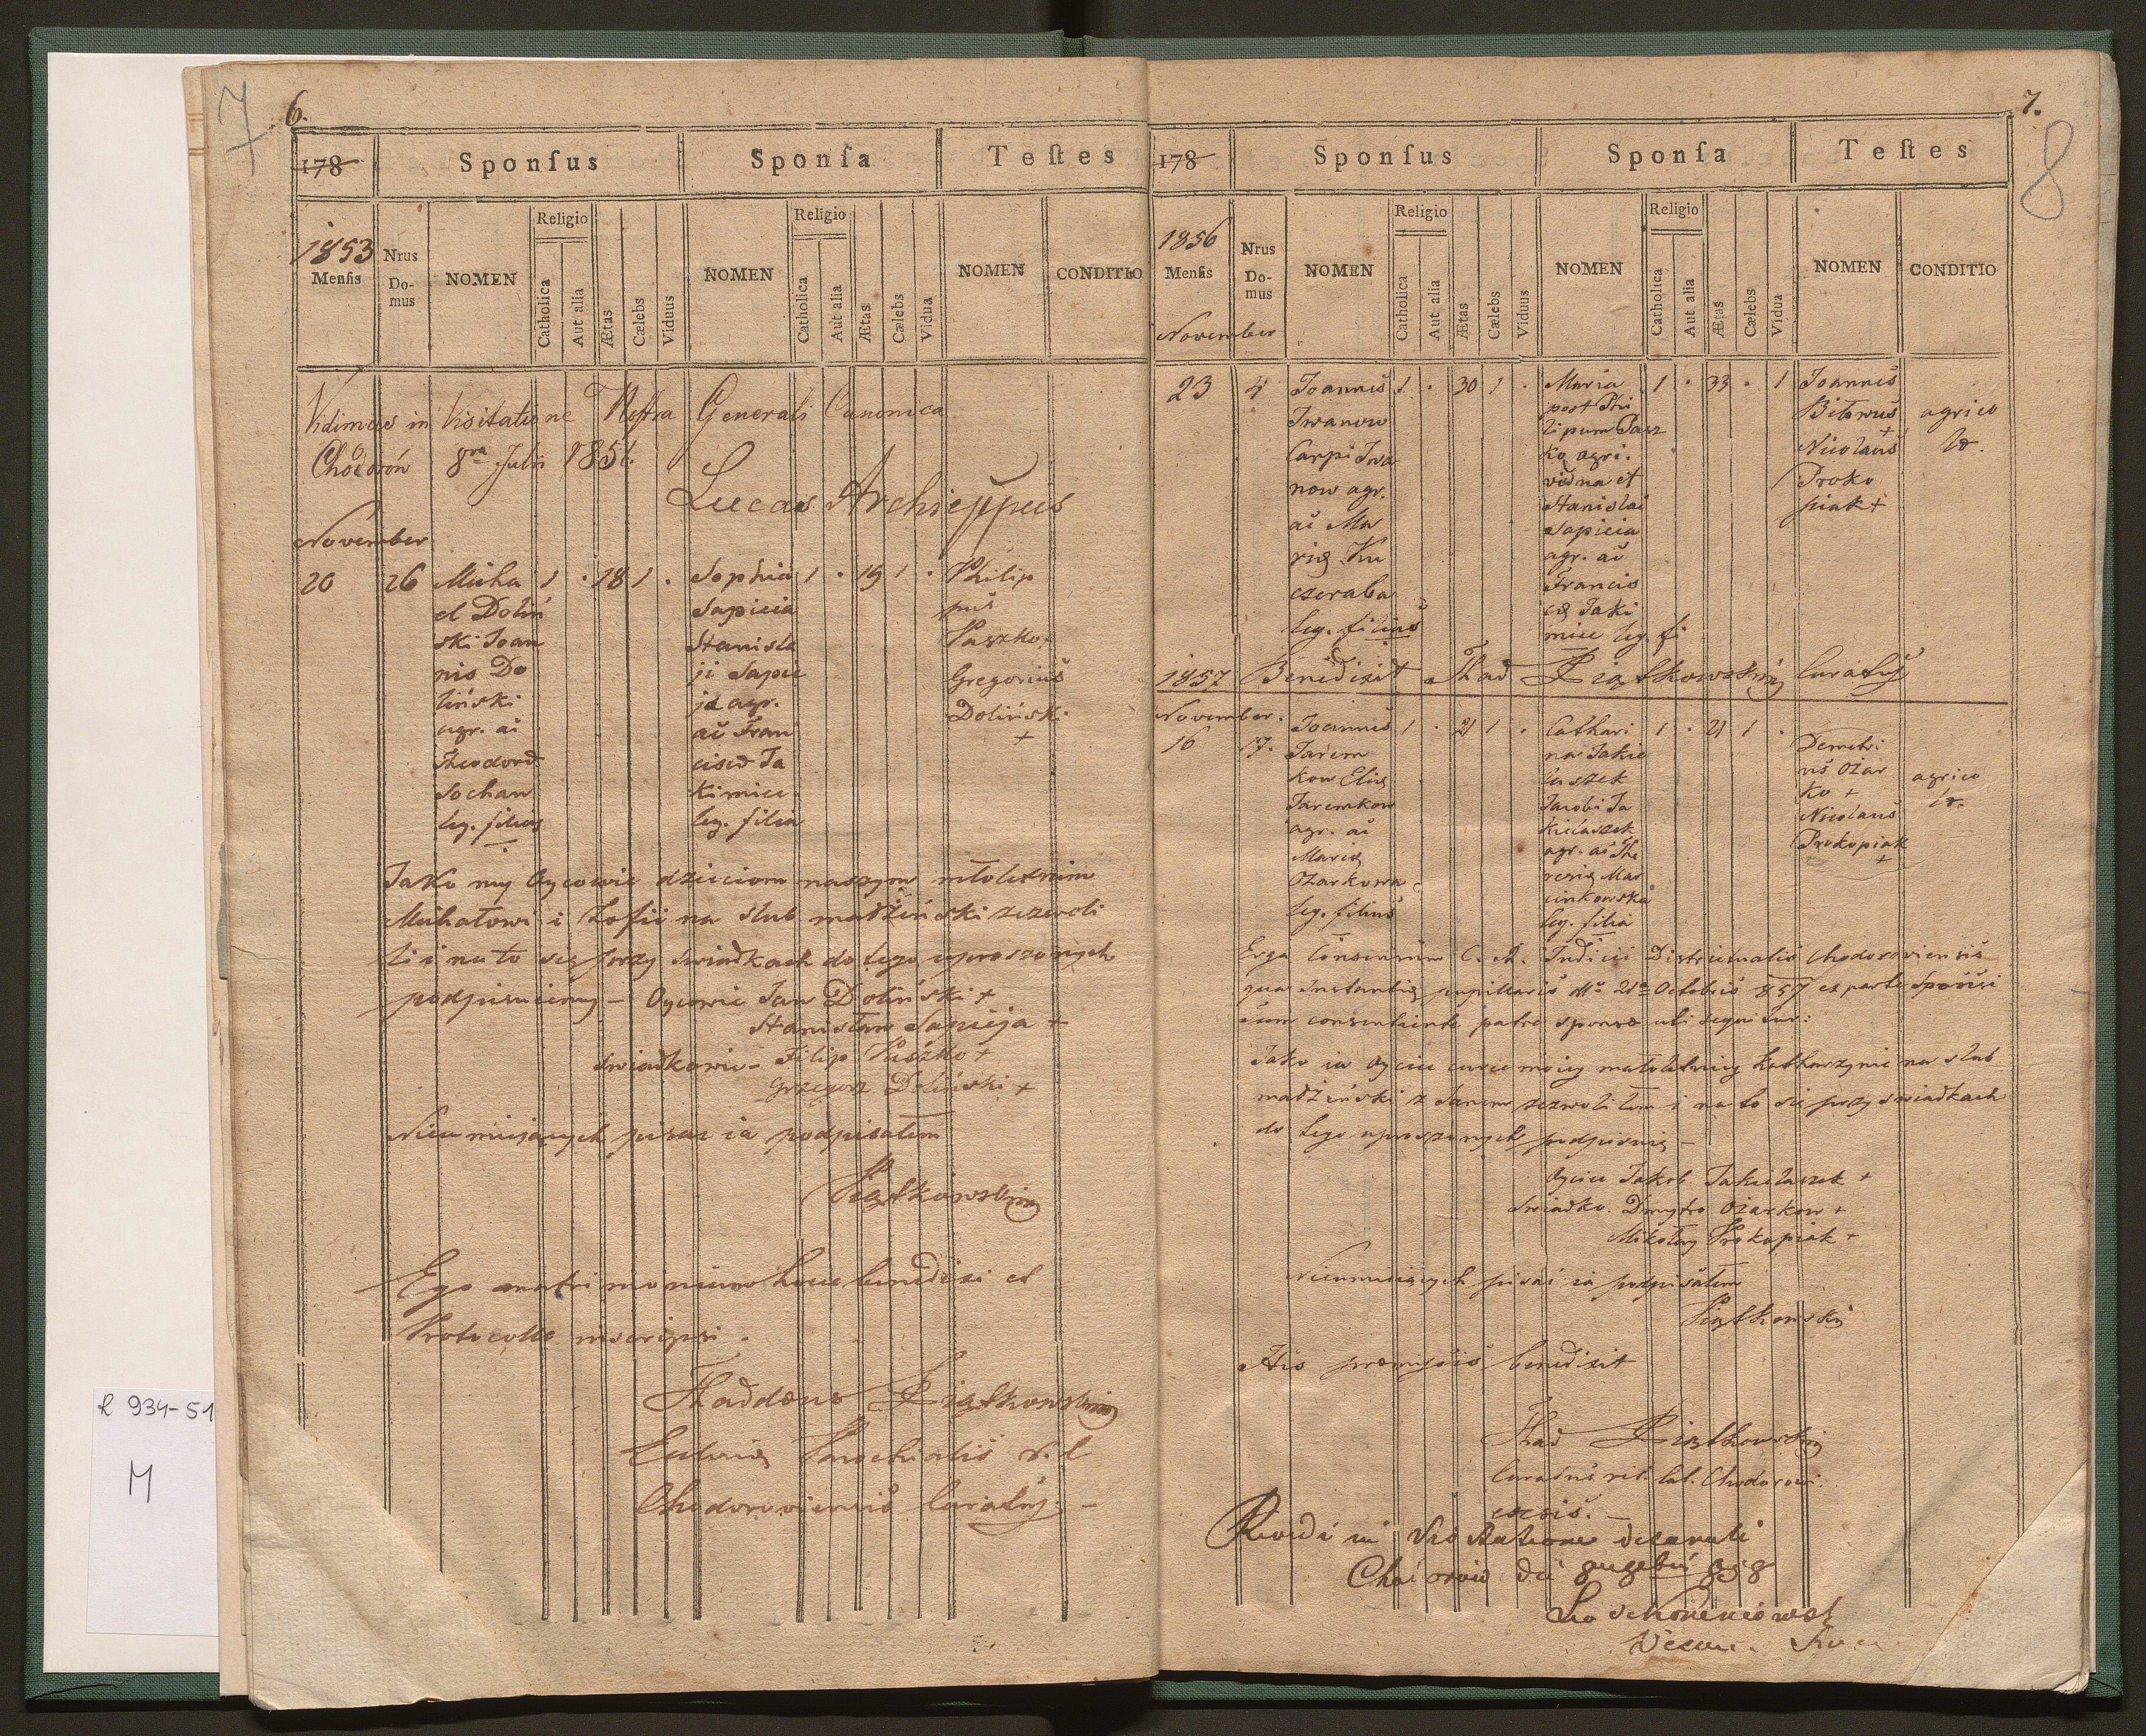 7
6.
178
Sponſus
Sponſa
Teſtes
1853
Menſis
Nrus Do-mus
NOMEN
Religio
Catholica
Aut alia
Ætas
Cælebs
Viduus
NOMEN
Religio
Catholica
Aut alia
Ætas
Cælebs
Vidua
NOMEN
CONDITIO
Vidimus in Visitatione Nostra Generali Canonica
Chodoron 8va Julii 1856.
Lucas Archieppus
November
20 26
Micha
el Doliń
ski Joan
nis Do
liński
agr. ac
Theodora
Sochan
leg. filius
1 . 18 1 .
Sophia
Sapieia
Stanisla
ji Sapie
ja agr.
ac Fran
cisca Ja
kimiec
leg. filia
1 . 19 1 .
Philip
pus
Paszko +
Gregorius
Doliński
+
Jako my Oycowie dzieciom naszym młoletnim
Michałowi i Zofii na slub małżiński zezwoli
li i na to się przy swiadkach do tego uproszonych
podpisuiemy - Oycowie Jan Doliński +
Stanisław Sapieja +
Swiadkowie - Filip Paszko +
Grzegorz Doliński +
Nieumiejących pisac ia podpisałem
Piątkowski
Ego matrimonium hocce benedixi et
Protocollo inscripsi.
Thaddæus Piątkowski
Ecclesiæ Parochialis r. l.
Chodoroviensis Curatus -
R 934-51
M
7.
8
178
Sponſus
Sponſa
Teſtes
1856
Menſis
November
Nrus Do-mus
NOMEN
Religio
Catholica
Aut alia
Ætas
Cælebs
Viduus
NOMEN
Religio
Catholica
Aut alia
Ætas
Cælebs
Vidua
NOMEN
CONDITIO
23 4
Joannes
Iwanow
Carpi Iwa
now agr.
ac Ma
riæ Ku
czeraba
leg. filius
1 . 30 1 .
Maria
post Phi
lipum Pasz
ko agri.
vidua et
Stanislai
Sapieia
agr. ac
Francis
cæ Jaki
miec leg. fi
1 . 33 . 1
Joannes
Bitowus
+
Nicolaus
Proko
piak +
agrico
læ.
1857 Benedixit Thad Piątkowski Curatus
November.
16 17.
Joannes
Jarem
kow Eliæ
Jaremkow
agr. ac
Mariæ
Ożarkowa
leg. filius
1 . 21 1 .
Cathari
na Jakie
laszek
Jacobi Ja
kielaszek
agr. ac The
resiæ Mar
cinkowska
leg. filia
1 . 21 1 .
Demetri
us Ożar
ko +
Nicolaus
Prokopiak
+
agrico
læ.
Erga Consensum C. R. Judicii Districtualis Chodoroviensis
qua Instantiæ pupillaris dto 21a Octobris 857 ex parte Sponsi
cum consentiente patre sponsæ uti sequitur:
Jako ia Oyciec curce moiey małoletniey Katharzynie na slub
małżiński z Janem zezwolilem i na to się przy swiadkach
do tego uproszonych podpisuię -
Oyciec Jakob Jakielaszek +
Swiadko. Dmytro Ożarkow +
Mikołay Prokopiak +
Nieumieiących pisać ia podpisałem
Piątkowski
His præmissis benedixit
Thad Piątkowski
Curatus rit. lat. Chodorovi:
ensis. -
Revidi in Visitatione decanali